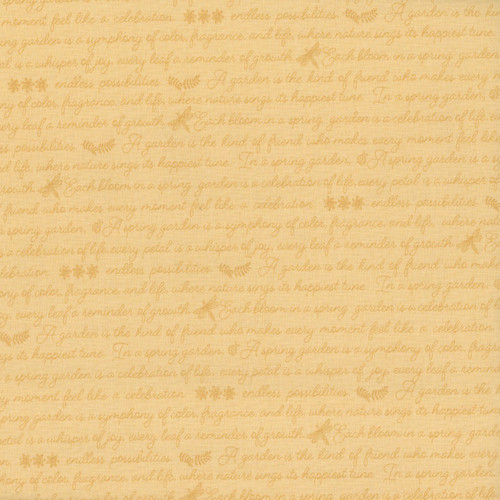 moment feel like a celebration. endless possibilities A garden is the kind
spring garden is a symphony of color, fragrance, and life, where nature sings its happiest tune.
petal is a whisper of joy, every leaf a reminder of growth. Each bloom in a spring garden
endless possibilities A garden is the kind of friend who makes every
of color, fragrance, and life, where nature sings its happiest tune. In a spring garden,
every leaf a reminder of growth. Each bloom in a spring garden is a celebration of life,
possibilities A garden is the kind of friend who makes every moment feel like
life, where nature sings its happiest tune. In a spring garden, A spring garden is a
growth. Each bloom in a spring garden is a celebration of life, every petal is a whisper
friend who makes every moment feel like a celebration. endless possibilities
garden, A spring garden is a symphony of color, fragrance, and life, where nature
is a celebration of life, every petal is a whisper of joy, every leaf a reminder of growth.
celebration. endless possibilities A garden is the kind of friend who
symphony of color, fragrance, and life, where nature sings its happiest tune. In a spring
joy, every leaf a reminder of growth. Each bloom in a spring garden is a celebration of
A garden is the kind of friend who makes every moment feel like a celebration.
happiest tune. In a spring garden, A spring garden is a symphony of color,
garden is a celebration of life, every petal is a whisper of joy, every leaf a reminder
every moment feel like a celebration. endless possibilities A garden is the
spring garden is a symphony of color, fragrance, and life, where nature sings its happiest tune.
petal is a whisper of joy, every leaf a reminder of growth. Each bloom in a spring garden
endless possibilities A garden is the kind of friend who makes every
of color, fragrance, and life, where nature sings its happiest tune. In a spring garden,